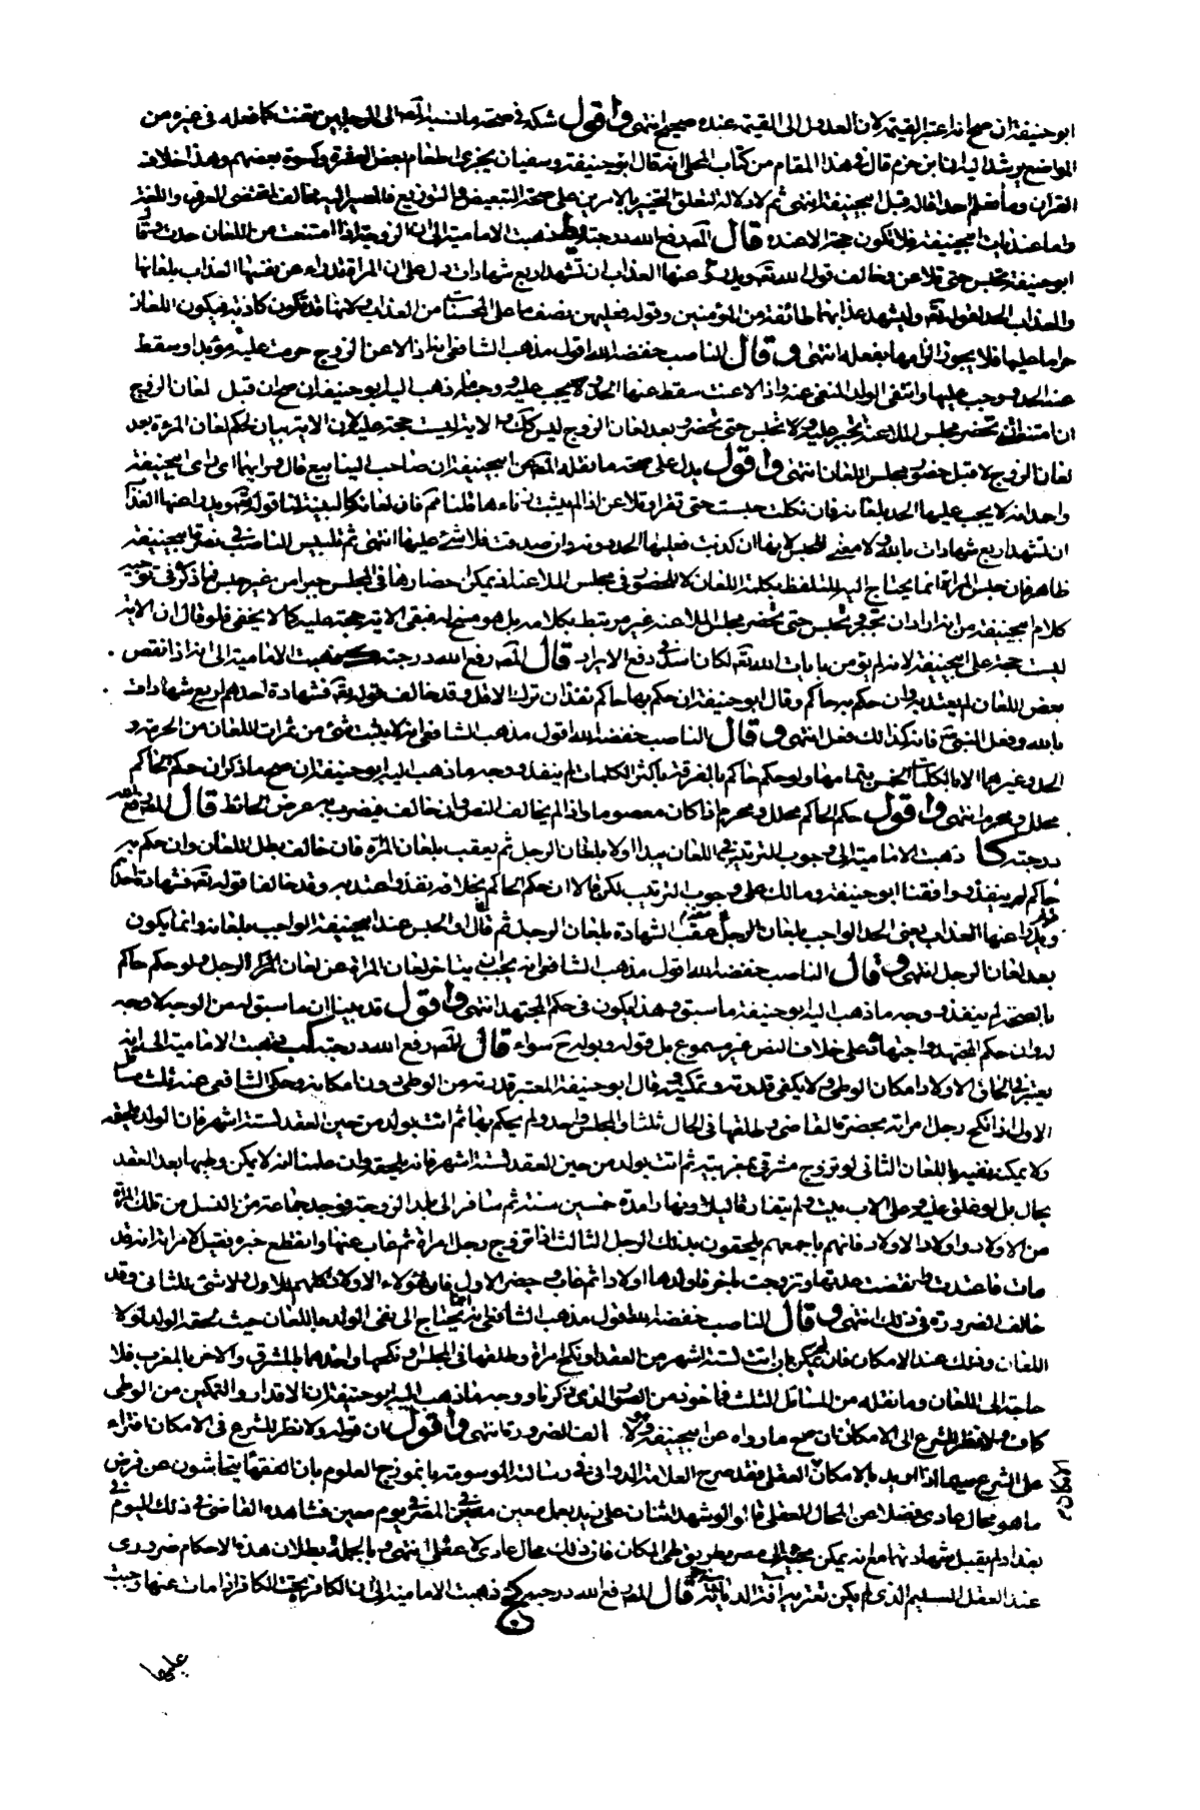 ابوحنيفة ان صح انه اعتبر القيمة كان العدول الى القيمة عنده صحيح انتهى واقول شكه فى صحة ما نسبه المص الى الرجلين تعنت كما فعله فى غيره من
المواضع يرشد اليه ان ابن حزم قال فى هذا المقام من كتاب المحلى انه قال ابوحنيفة وسفيان يجزى اطعام بعض العشرة وكسوة بعضهم وهذا خلاف
القرآن وما نعلم احدا قاله قبل ابيحنيفة انتهى ثم لا دلالة لتعلق التخيير بالامرين على صحة التبعيض والتوزيع فالمصير اليه مخالف لمقتضى العرف واللغة
قال المص رفع الله درجته ذهبت الامامية الى ان الزوجة اذا امتنعت من اللعان حدت وقال
ابوحنيفة تحبس حتى تلاعن وخالف قول الله تعه ويدرؤ عنها العذاب ان تشهد اربع شهادات دل على ان المراة تدراء عن نفسها العذاب بلعانها
والعذاب الحد لقوله تعه وليشهد عذابهما طائفة من المؤمنين وقوله فعليهن نصف ما على المحصنات من العذاب ولانها قد تكون كاذبة فيكون اللعان
حراما عليها فلا يجوز الزامها بفعله انتهى وقال الناصب خفضه الله اقول مذهب الشافعى انه اذا لاعن الزوج حرمت عليه مؤبدا وسقط
عنه الحد ووجب عليها وانتفى الولد المنفى عنه واذا لاعنت سقط عنها الحد ذهب اليه ابوحنيفة ان صح ان قبل لعان الزوج
ان امتنعت تحضر مجلس الملاعنة ولا تحبس حتى تحضر وبعد لعان الزوج ليس كك والاية ليست حجة عليه لان الاية بيان لحكم لعان المرءة بعد
لعان الزوج لا قبل حضور مجلس اللعان انتهى واقول يدل على صحة ما نقله المص عن ابيحنيفة ان صاحب الينابيع قال
لا يجب عليها الحد بلعانه فان نكلت حبست حتى تقر او تلاعن
ان تشهد اربع شهادات بالله ولا معنى للحبس لانها ان كذبت فعليها الحد وان صدقت فلا شئ عليها انتهى ثم تلبيس الناصب فى نصرة ابيحنيفة
ظاهر فان حبس المراة انما يحتاج اليه للتلفظ بكلمة اللعان لا للحضور فى مجلس الملاعنة اذ يمكن احضارها فى المجلس جبرا من غير حبس فما ذكره فى توجيه
كلام ابيحنيفة من انه اراد ان تحبس حتى تحضر مجلس الملاعنة غير مرتبط بكلامه بل هو مسخ له فبقى الاية حجة عليه كما لا يخفى فلو قال ان الاية
ليست حجة على ابيحنيفة لانه لم يؤمن بايات الله تعه لكان اسد فى دفع الايراد قال المص رفع الله درجته ذهبت الامامية الى انه اذا نقص
بعض اللعان لم يعتد به وان حكم به حاكم وقال ابوحنيفة ان حكم بها حاكم نفذ ان ترك الاقل وقد خالف قوله تعه فشهادة احدهم اربع شهادات
بالله وفعل النبى فانه كذلك فعل انتهى وقال الناصب خفضه الله اقول مذهب الشافعى انه لا يثبت شئ من ثمرات اللعان من الحرمة و
الحد وغيرهما الا بالكلمات الخمس بتمامها ولو حكم حاكم بالفرقة باكثر الكلمات لم ينفذ ووجه ما ذهب اليه ابوحنيفة ان صح ما ذكر ان حكم الحاكم
محلل ومحرم انتهى واقول حكم الحاكم محلل ومحرم اذا كان معصوما واذا لم يخالف النص وان خالف فيضرب به عرض الحائط قال المص رفع الله
درجته كا ذهبت الامامية الى وجوب الترتيب فى اللعان يبدا اولا بلعان الرجل ثم يعقب بلعان المراة فان خالف بطل اللعان وان حكم به
حاكم لم ينفذ ووافقنا ابوحنيفة ومالك على وجوب الترتيب لكن قالا ان حكم الحاكم بخلافه نفذ واعتد به وقد خالفا قوله تعه فشهادة احدهم
ويدرؤ عنها العذاب يعنى الحد الواجب بلعان الرجل عقيب الشهادة بلعان الرجل ثم قال او الحبس عند ابيحنيفة الواجب بلعانه وانما يكون
بعد لعان الرجل انتهى وقال الناصب خفضه الله اقول مذهب الشافعى انه يجب ان يتاخر لعان المراة عن لعان الرجل ولو حكم حاكم
بالصحة لم ينفذ ووجه ما ذهب اليه ابوحنيفة ما سبق وهذا يكون فى حكم المجتهد انتهى واقول قد بينا ان ما سبق له من الوجه لا وجه
له وان حكم المجتهد واجتهاده على خلاف النص غير مسموع بل قوله وبوله ح سواء قال المص رفع الله درجته كب ذهبت الامامية الى انه
يعتبر فى الحاق الاولاد امكان الوطى ولا يكفى قدرته وتمكينه وقال ابوحنيفة المعتبر قدرته من الوطى دون امكانه وحكى الشافعى عنه ثلث مسائل
الاولى اذا نكح رجل امراته بحضرة القاضى وطلقها فى الحال ثلثا والمجلس واحد ولم يحكم بها ثم اتت بولد من حين العقد لستة اشهر فان الولد يلحقه
ولا يمكنه نفيه باللعان الثانى لو تزوج مشرقى بمغربية ثم اتت بولد من حين العقد لستة اشهر فانه يلحقه وان علمنا انه لا يمكن وطيها بعد العقد
بحال بل لو غلق عليه وعلى الاب بيت ولم يتفارقا ليلا ونهارا مدة خمسين سنة ثم سافر الى بلد الزوجة فوجد جماعة من النسل من تلك المراة
من الاولاد واولاد الاولاد فانهم باجمعهم يلحقون بذلك الرجل الثالث اذا تزوج رجل امراة ثم غاب عنها وانقطع خبره فقيل لامراته انه قد
مات فاعتدت وانقضت عدتها وتزوجت باخر فاولدها اولادا ثم غاب وحضر الاول فان هؤلاء الاولاد كلهم للاول ولا شئ للثانى وقد
خالف الضرورة فى ذلك انتهى وقال الناصب خفضه الله اقول مذهب الشافعى انه انما يحتاج الى نفى الولد باللعان حيث يلحقه الولد لولا
اللعان وذلك عند الامكان فان لم يمكن بان اتت لستة اشهر من العقد او نكح امراة وطلقها فى المجلس او نكحها واحدهما بالمشرق والاخر بالمغرب فلا
حاجة الى اللعان وما نقله من المسائل الثلث فماخوذ من الصور الذى ذكرنا ووجه ما ذهب اليه ابوحنيفة ان الاقدار والتمكين من الوطى
كاف ولا نظر للشرع الى الامكان ان صح ما رواه عن ابيحنيفة ولا الف الضرورة انتهى واقول ان قوله ولا نظر للشرع فى الامكان افتراء
على الشرع سيما اذا اريد بالامكان العقلى فقد صرح العلامة الدوانى فى رسالته الموسومة بانموذج العلوم بان الفقهاء يتحاشون عن فرض
ما هو محال عادى فضلا عن المحال العقلى قالوا لو شهد اثنان على زيد بعمل معين فى يوم معين فشاهده القاضى فى ذلك اليوم فى
بغداد لم يقبل شهادتهما مع انه يمكن مجيئه الى مصر بطريق طى المكان فان ذلك محال عادى لا عقلى انتهى وبالجملة بطلان هذه الاحكام ضرورى
عند العقل السليم الذى لم يكن تعتريه افة قال المص رفع الله درجته كج ذهبت الامامية الى ان الكافرة تحت الكافر اذا مات عنها وجبت
عليها